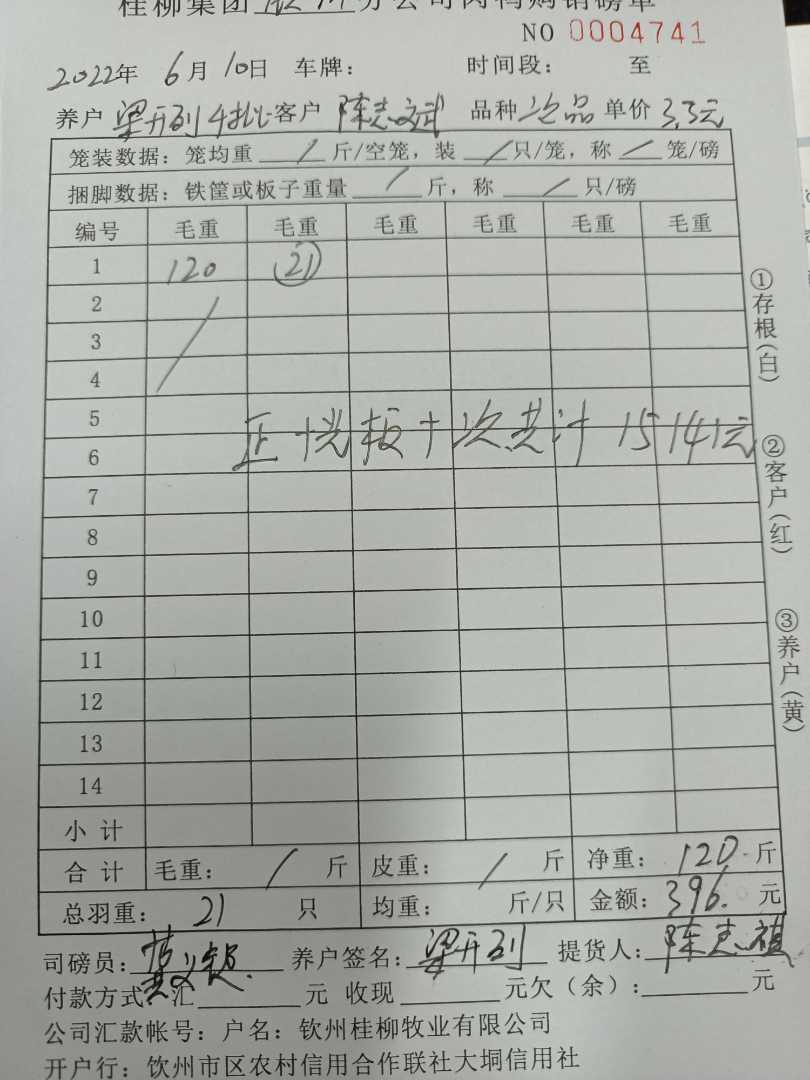 桂柳集团钦州分公司肉鸭购销磅单
NO 0004741
2022年 6月 10日 车牌: 时间段: 至
养户 梁开列 4批 客户 陈志斌 品种 次品 单价 3.3元
笼装数据: 笼均重 / 斤/空笼, 装 / 只/笼, 称 / 笼/磅
捆脚数据: 铁筐或板子重量 / 斤, 称 / 只/磅
编号 毛重 毛重 毛重 毛重 毛重 毛重
1 120 21
2
3
4
5
6
正+光板+次共计 15141元
7
8
9
10
11
12
13
14
小计
合计 毛重: / 斤 皮重: / 斤 净重: 120 斤
总羽重: 21 只 均重: 斤/只 金额: 396. 元
司磅员: 养户签名: 梁开列 提货人: 陈志
付款方式: 汇 元 收现 元欠(余): 元
公司汇款帐号: 户名: 钦州桂柳牧业有限公司
开户行: 钦州市区农村信用合作联社大垌信用社
①存根(白)
②客户(红)
③养户(黄)